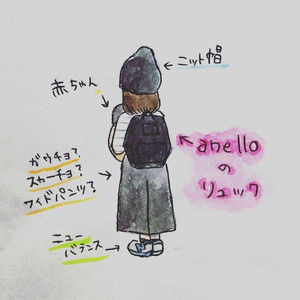 ニット帽
赤ちゃん
anello
の
リュック
ガウチョ?
スカーチョ?
ワイドパンツ?
ニュー
バランス